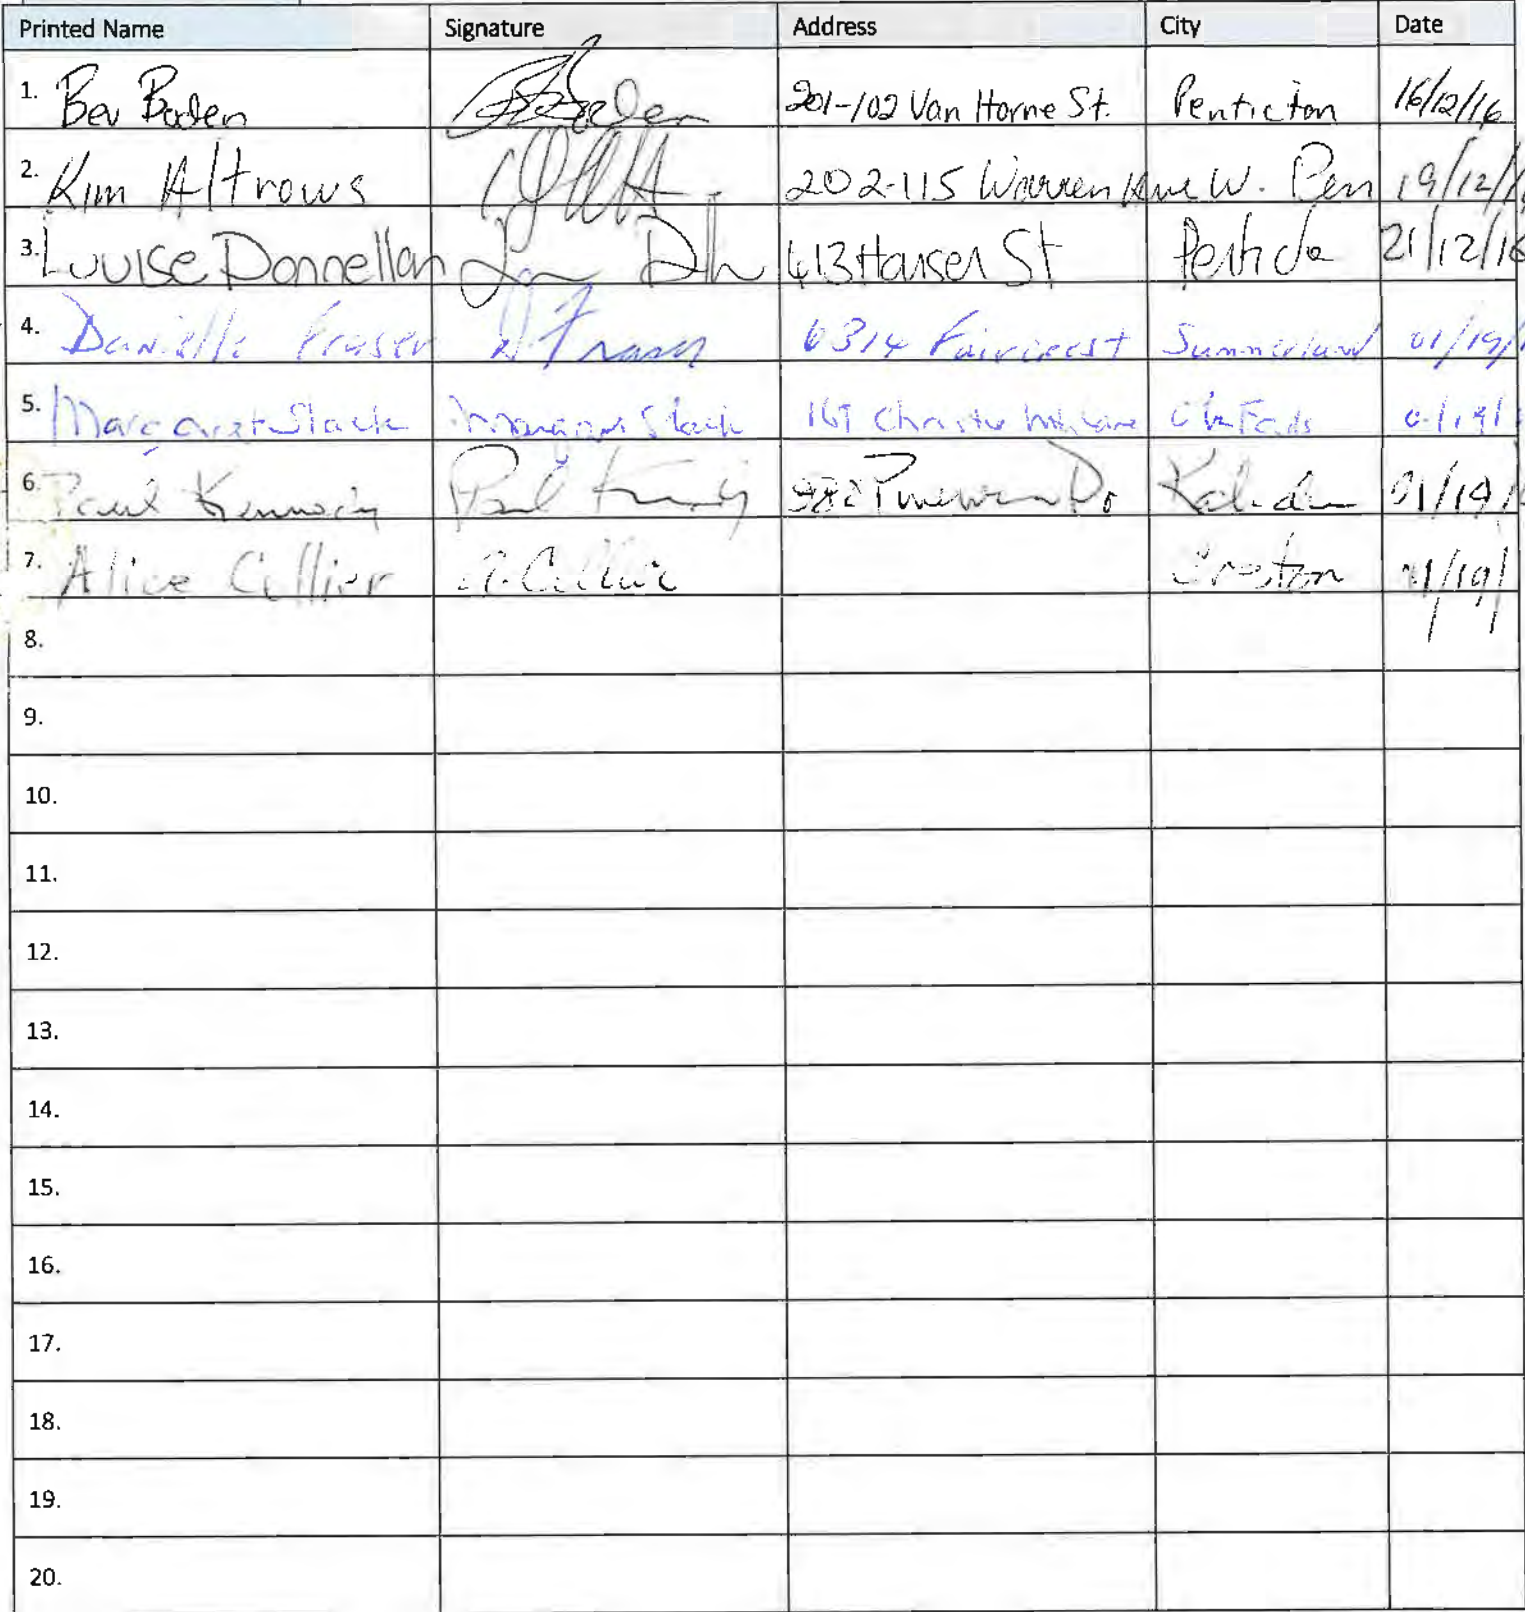 Printed Name Signature Address City Date
1. Bev Baden Baden 201-102 Van Horne St. Penticton 16/12/16
2. Kim Altrows 202-115 Warren Ave W. Pen 19/12/
3. Louise Donnellan 413 Hansen St 21/12/16
4. Danielle Fraser D Fraser 6314 Faircrest Summerland 01/19/
5. Margaret Slack Margaret Slack Ok Falls
6. Paul Paul Dr Kaleden 01/19/
7. Alice Collier A. Collier Creston /19/
8.
9.
10.
11.
12.
13.
14.
15.
16.
17.
18.
19.
20.